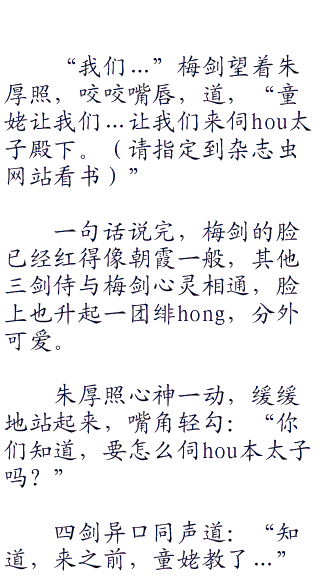 “我们…”梅剑望着朱
厚照，咬咬嘴唇，道，“童
姥让我们…让我们来伺hou太
子殿下。（请指定到杂志虫
网站看书）”
一句话说完，梅剑的脸
已经红得像朝霞一般，其他
三剑侍与梅剑心灵相通，脸
上也升起一团绯hong，分外
可爱。
朱厚照心神一动，缓缓
地站起来，嘴角轻勾：“你
们知道，要怎么伺hou本太子
吗？”
四剑异口同声道：“知
道，来之前，童姥教了…”